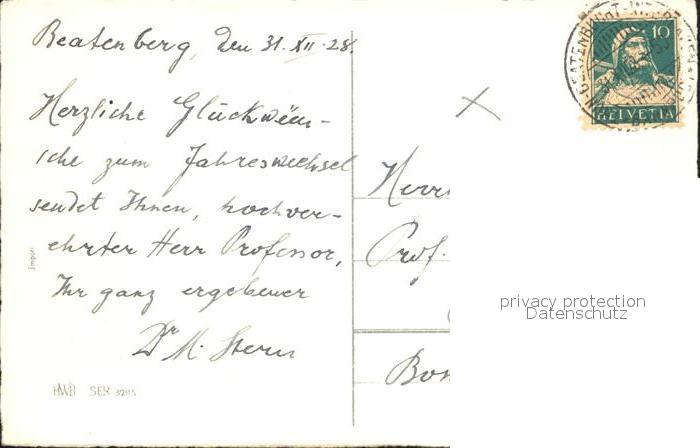 Beatenberg, den 31. XII. 28.
Herzliche Glückwün-
sche zum Jahreswechsel
sendet Ihnen, hochver-
ehrter Herr Professor,
Ihr ganz ergebener
Dr M. Stern
HWB SER 3285
Import
10
HELVETIA
Herrn
Prof.
privacy protection
Datenschutz